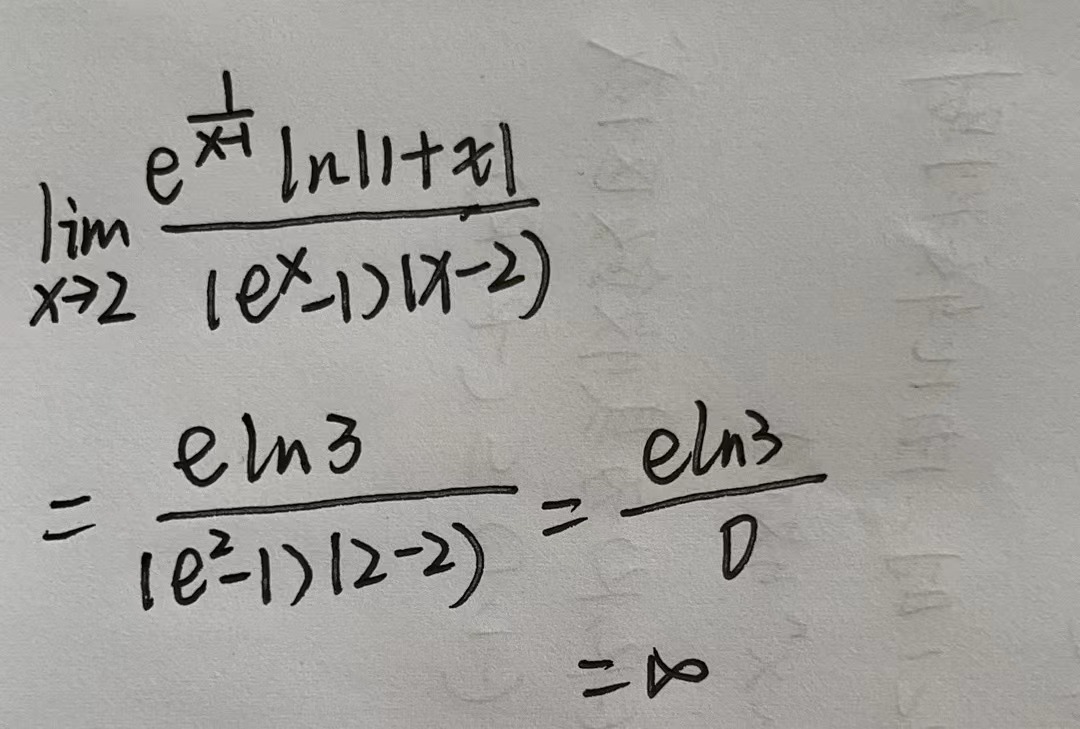 lim x→2 e^(1/(x-1)) ln|1+x| / (e^x-1)(x-2)
= e ln3 / (e^2-1)(2-2) = e ln3 / 0
= ∞